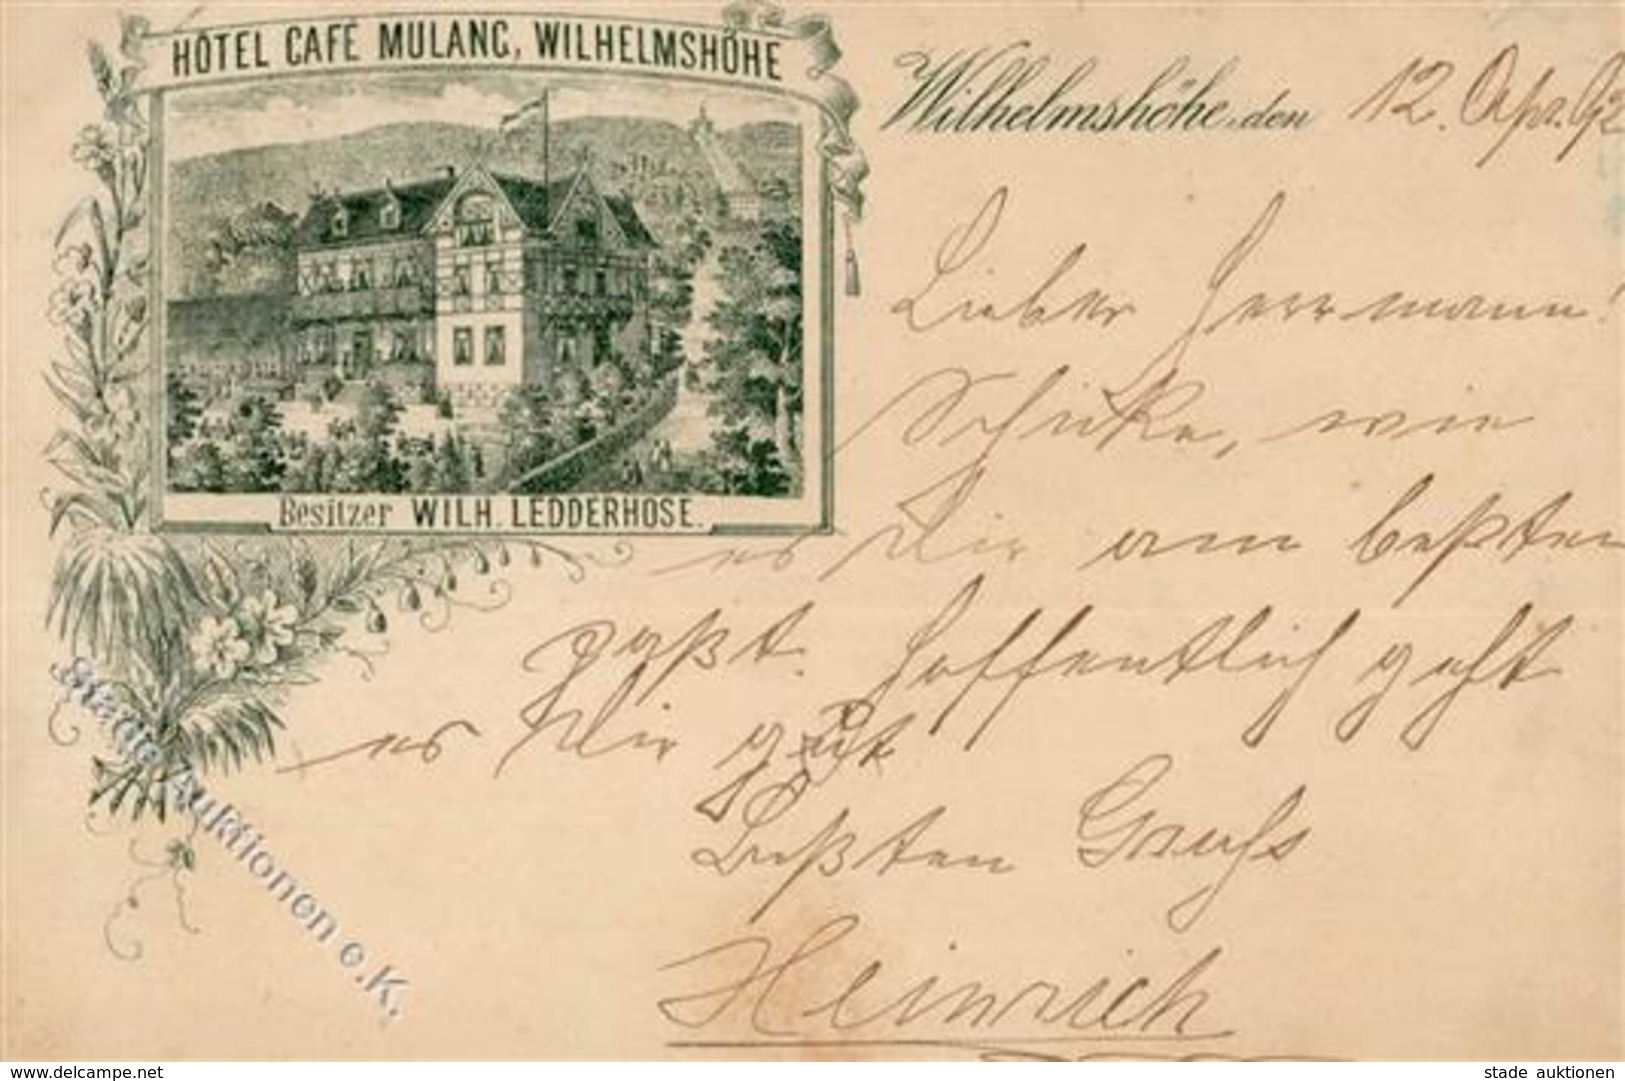 HÔTEL CAFÉ MULANG, WILHELMSHÖHE
Besitzer WILH. LEDDERHOSE.
Wilhelmshöhe, den 12. Apr. 92
Lieber Herrmann!
Schicke, wie
es Dir am beßten
paßt. Hoffentlich geht
es Dir gut
Beßten Gruß
Heinrich
Stade Auktionen e.K.
www.delcampe.net
stade auktionen